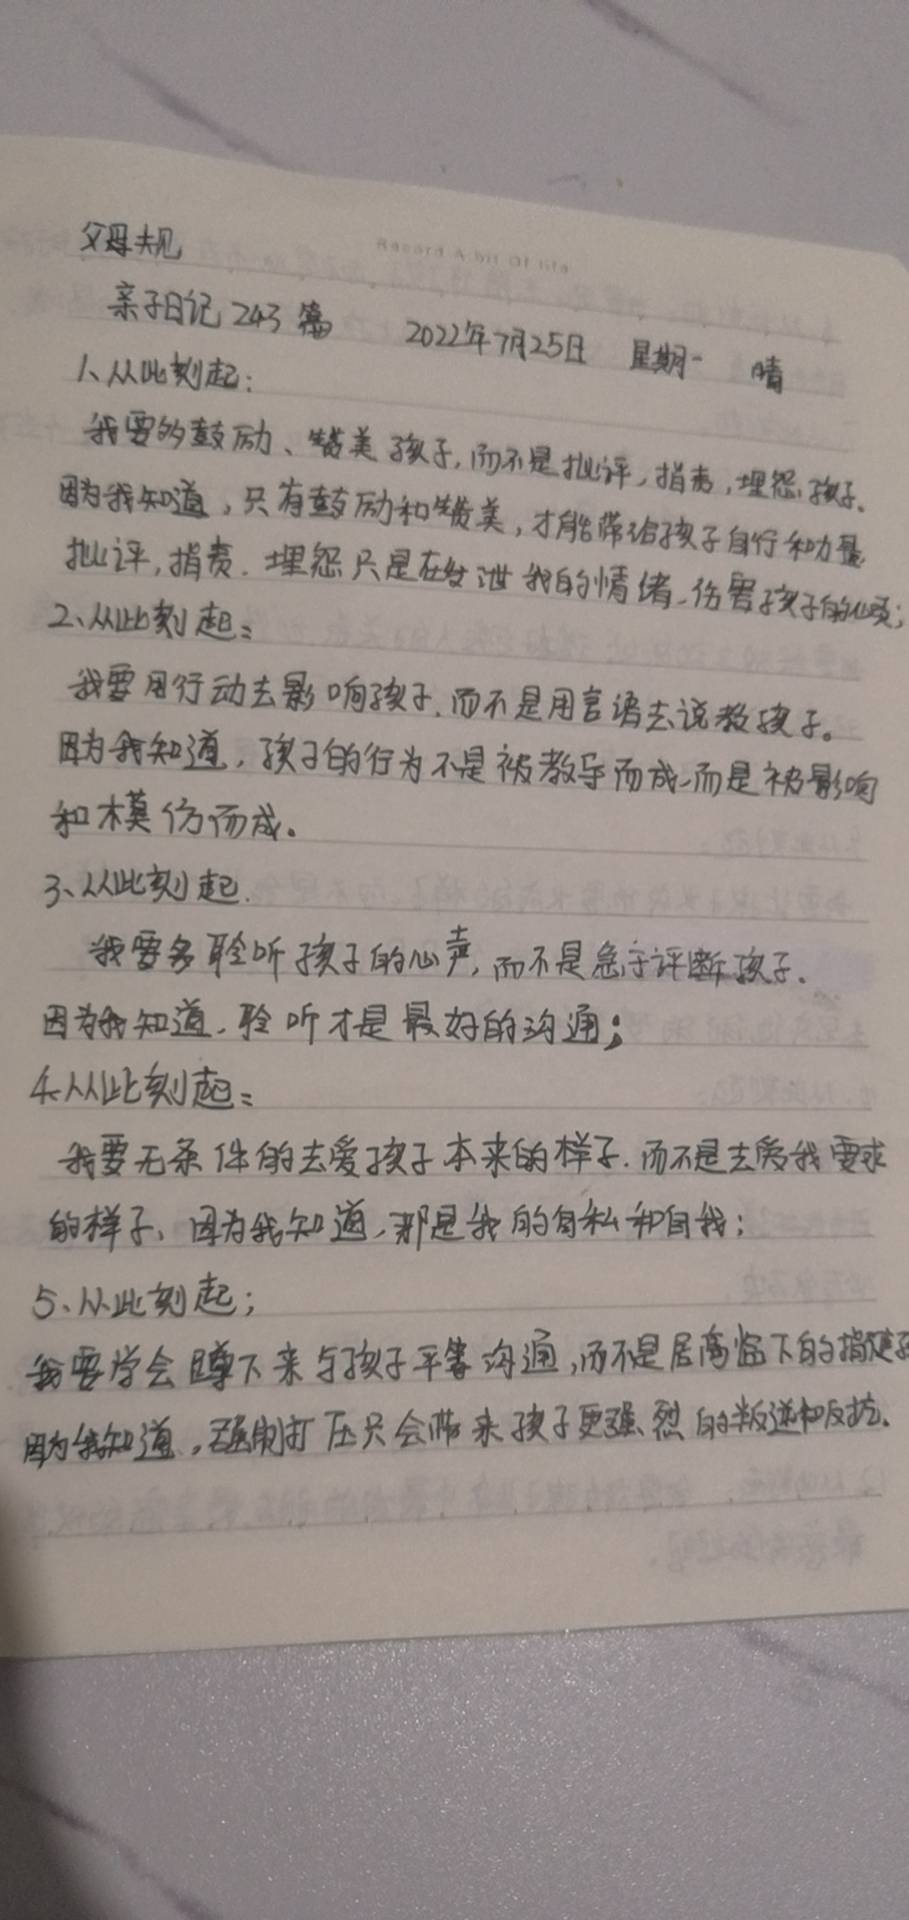 Record A bit Of life
父母规
亲子日记 243 篇 2022年7月25日 星期一 晴
1、从此刻起:
我要多鼓励、赞美孩子,而不是批评,指责,埋怨孩子.
因为我知道,只有鼓励和赞美,才能带给孩子自行和力量
批评,指责.埋怨只是在发泄我的情绪、伤害孩子的心灵;
2、从此刻起:
我要用行动去影响孩子.而不是用言语去说教孩子。
因为我知道,孩子的行为不是被教导而成、而是被影响
和模仿而成。
3、从此刻起.
我要多聆听孩子的心声,而不是急于评断孩子.
因为我知道.聆听才是最好的沟通;
4、从此刻起:
我要无条件的去爱孩子本来的样子.而不是去爱我要求
的样子、因为我知道,那是我的自私和自我;
5、从此刻起;
我要学会蹲下来与孩子平等沟通,而不是居高临下的指使孩
因为我知道,强制打压只会带来孩子更强烈的叛逆和反抗.